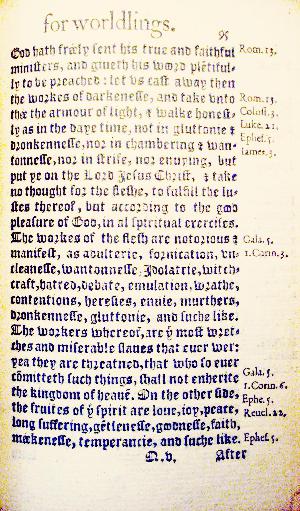 for worldlings.
95
God hath freely sent his true and faithful Rom. 13.
ministers, and giueth his word plẽtiful-
ly to be preached: let vs cast away then
the workes of darkenesse, and take vnto Rom. 13.
thée the armour of light, & walke honest- Colossi. 3.
ly as in the daye time, not in gluttonie & Luke. 21.
dronkennesse, nor in chambering & wan- Ephes. 5.
tonnesse, nor in strife, nor enuying, but Iames. 3.
put ye on the Lord Jesus Christ, & take
no thought for the fleshe, to fulfill the lu-
stes thereof, but according to the good
pleasure of God, in al spiritual exercises.
The workes of the flesh are notorious & Gala. 5.
manifest, as adulterie, fornication, vn- 1. Corin. 3.
cleanesse, wantonnesse, Idolatrie, witch-
craft, hatred, debate, emulation, wrathe,
contentions, heresies, enuie, murthers,
dronkennesse, gluttonie, and suche like.
The workers whereof, are ẙ most wret-
ches and miserable slaues that euer wer:
yea they are threatned, that who so euer
cõmitteth such things, shall not enherite Gala. 5.
the kingdom of heauẽ. On the other side, 1. Corin. 6.
the fruites of ẙ spirit are loue, ioy, peace, Ephe. 5.
long suffering, gẽtlenesse, goodnesse, faith, Reuel. 22.
meekenesse, temperancie, and suche like. Ephes. 5.
N.v. After